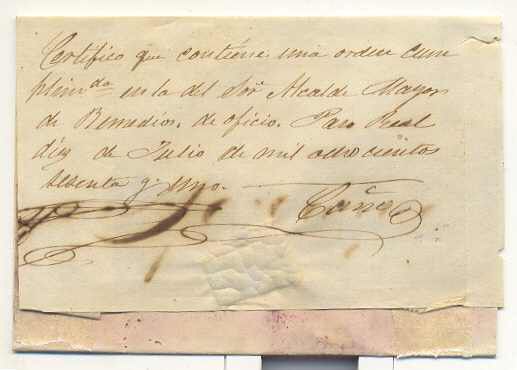 Certifico que contiene una orden cum
plimda en la del Sor Alcalde Mayor
de Remedios, de oficio. Paso Real
diez de Julio de mil ochocientos
sesenta y uno.
Caño